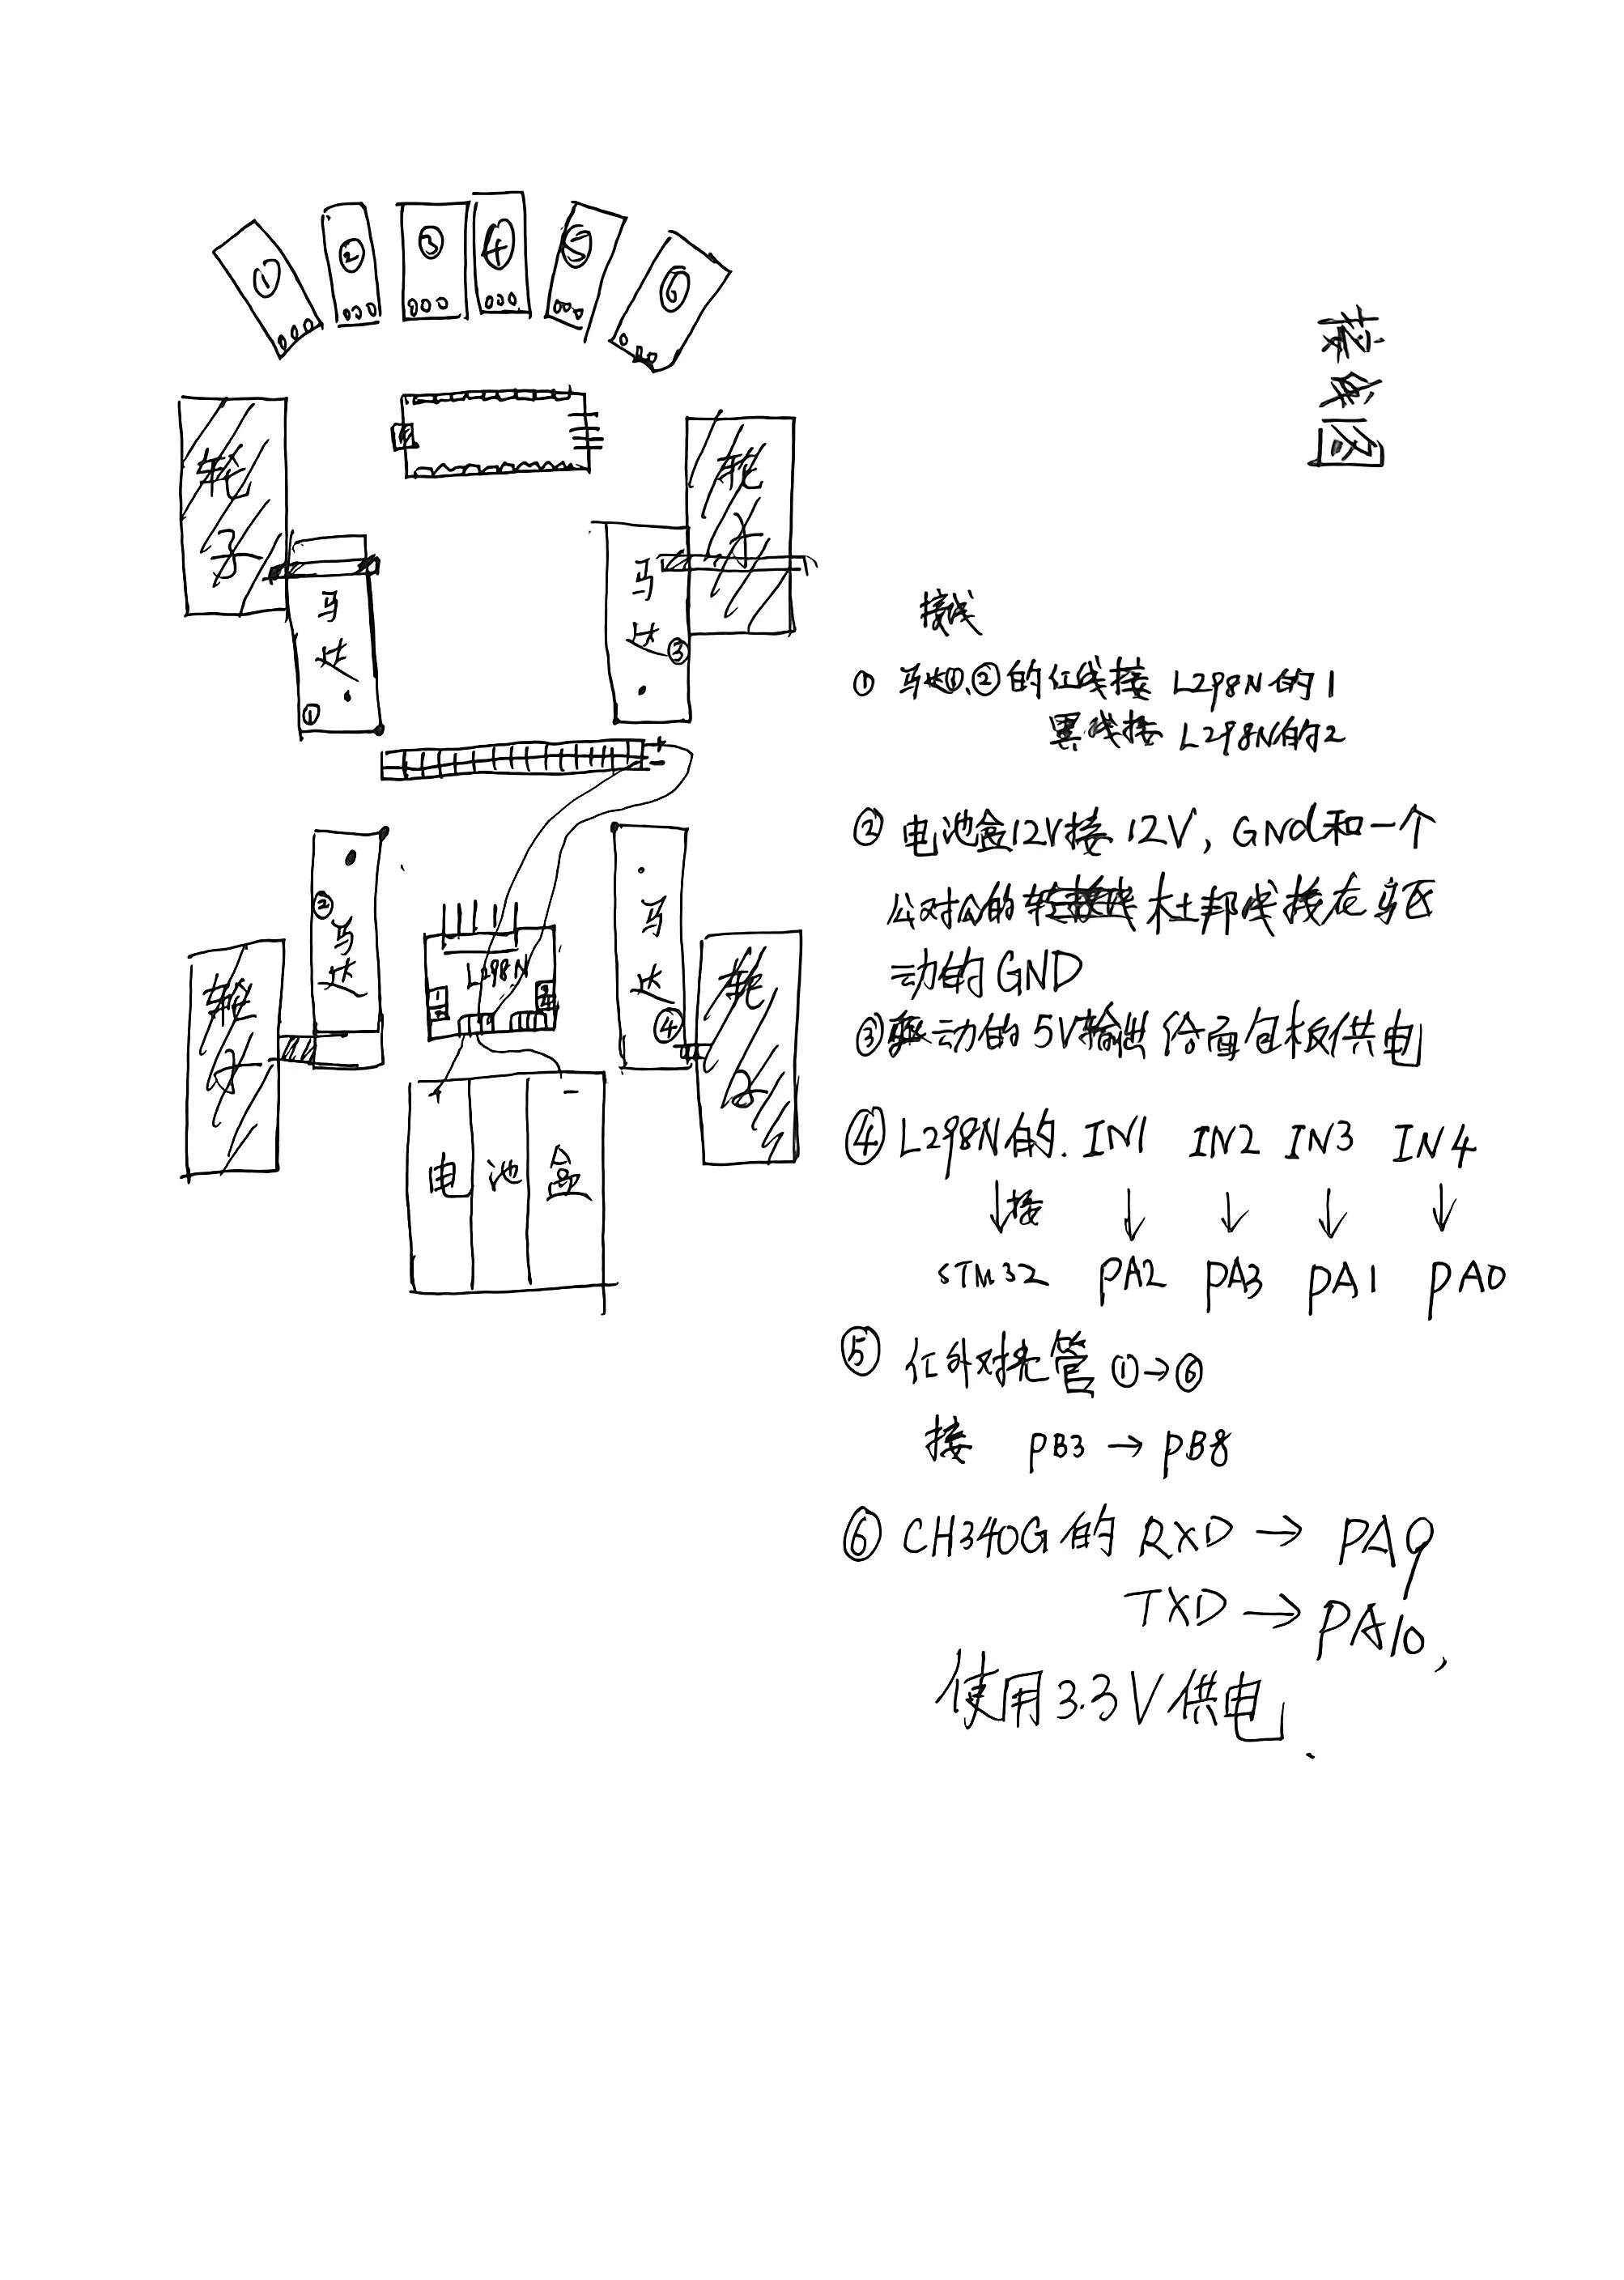 ① ② ③ ④ ⑤ ⑥
接线图
轮子
轮子
马达
①
马达③
+
-
②马达
L298N
马达
④
轮子
轮子
+ -
电池盒
接线
① 马达①、②的红线接 L298N的1
黑线接 L298N的2
② 电池盒12V接12V, GNd和一个
公对公的 杜邦线接在驱
动的GND
③驱动的5V输出给面包板供电
④ L298N的. IN1 IN2 IN3 IN4
↓接 ↓ ↓ ↓ ↓
STM32 PA2 PA3 PA1 PA0
⑤ 红外对光管 ①→⑥
接 PB3 → PB8
⑥ CH340G的 RXD → PA9
TXD → PA10,
使用3.3V供电.